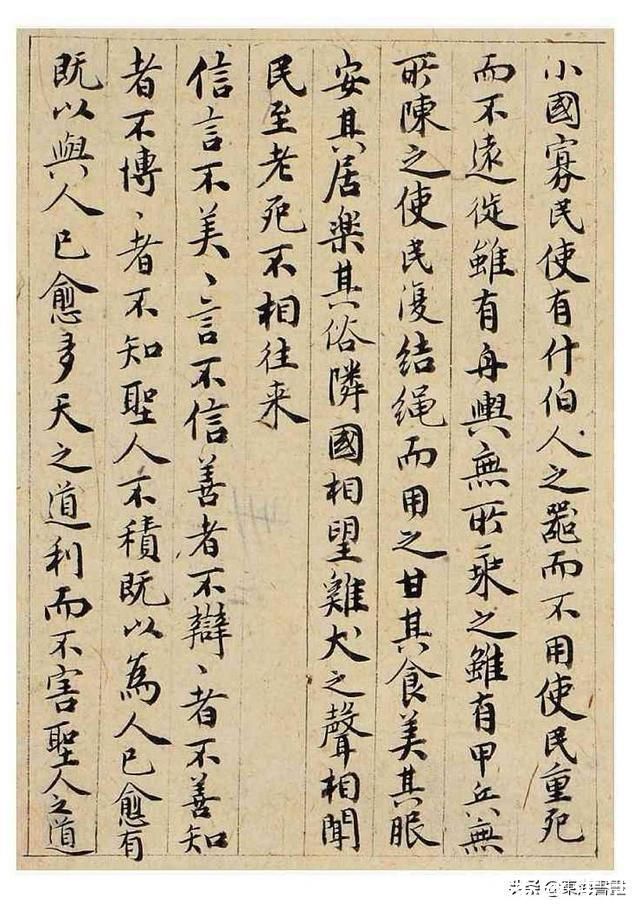 小國寡民使有什伯人之器而不用使民重死
而不遠徙雖有舟輿無所乗之雖有甲兵無
所陳之使民復結繩而用之甘其食美其服
安其居樂其俗隣國相望雞犬之聲相聞
民至老死不相往来
信言不美〻言不信善者不辯〻者不善知
者不博〻者不知聖人不積既以為人已愈有
既以與人已愈多天之道利而不害聖人之道
头条@東方書社